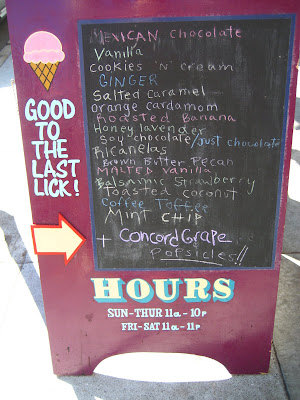 MEXICAN Chocolate
Vanilla
Cookies 'N' Cream
GINGER
Salted Caramel
Orange Cardamom
Roasted Banana
Honey lavender
Soy chocolate/Just chocolate
Ricanelas
Brown Butter Pecan
MALTED Vanilla
Balsamic Strawberry
Toasted coconut
Coffee Toffee
MINT CHIP
+ Concord Grape
Popsicles!!
GOOD
TO THE
LAST
LICK!
HOURS
SUN-THUR 11a - 10p
FRI-SAT 11a - 11p